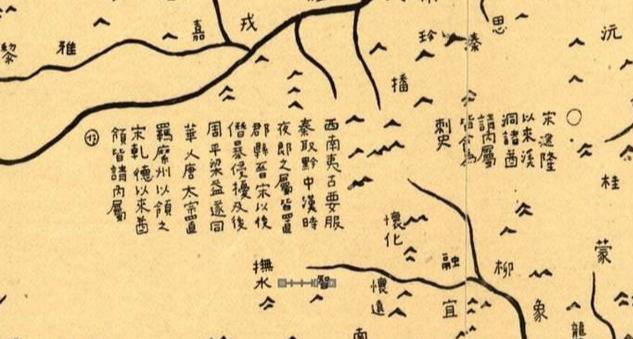 嘉
戎
雅
黎
思
沅
播
溱
桂
以來溪
洞諸酋
請內屬
刺史
西南夷古要服
秦取黔中漢時
夜郎之屬皆置
郡縣晉宋以後
僭暴侵擾及後
周平梁益遂同
華人唐太宗置
羈縻州以領之
宋乾德以來酋
領皆請內屬
懷化
融
柳
蒙
撫水
懷遠
宜
象
龍
南